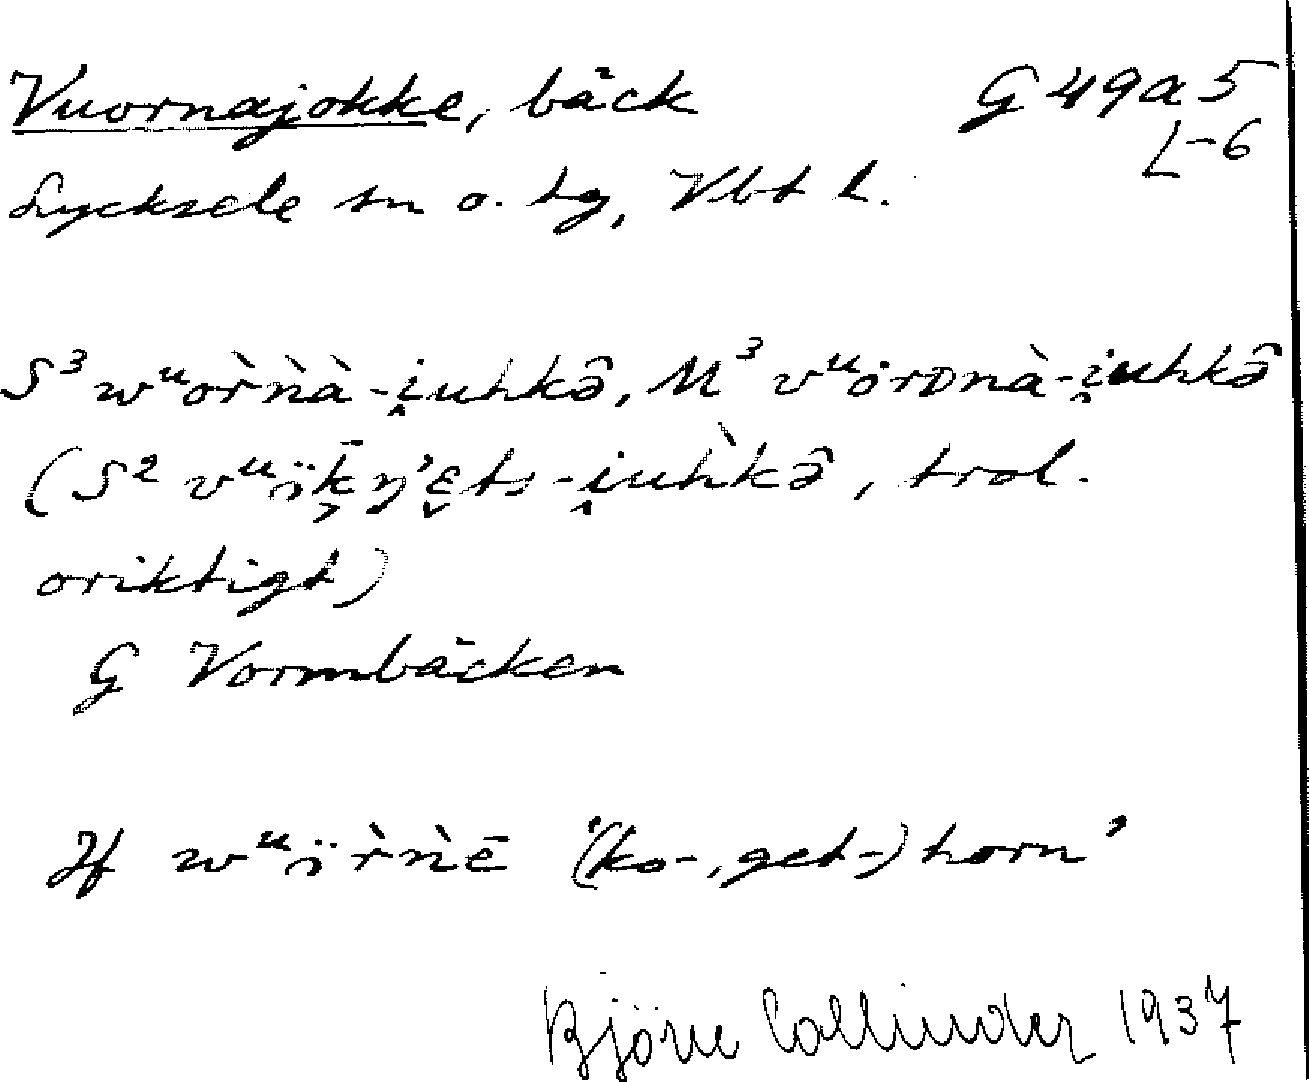 Vuornajokke, bäck G 49a 5
L-6
Lycksele sn o. tg, Vbt l.
S³ wᵘor̀ǹà-i̯uhkə̂, M³ vᵘȯrᴅnà-i̯uhkə̂
(S² vᵘï̄k̨ŋ'ɛ̬ts-i̯uh̀kə̂, trol.
oriktigt)
G Vormbäcken
Jf wᵘïr̀ǹē '(ko-, get-) horn'
Björn Collinder 1937